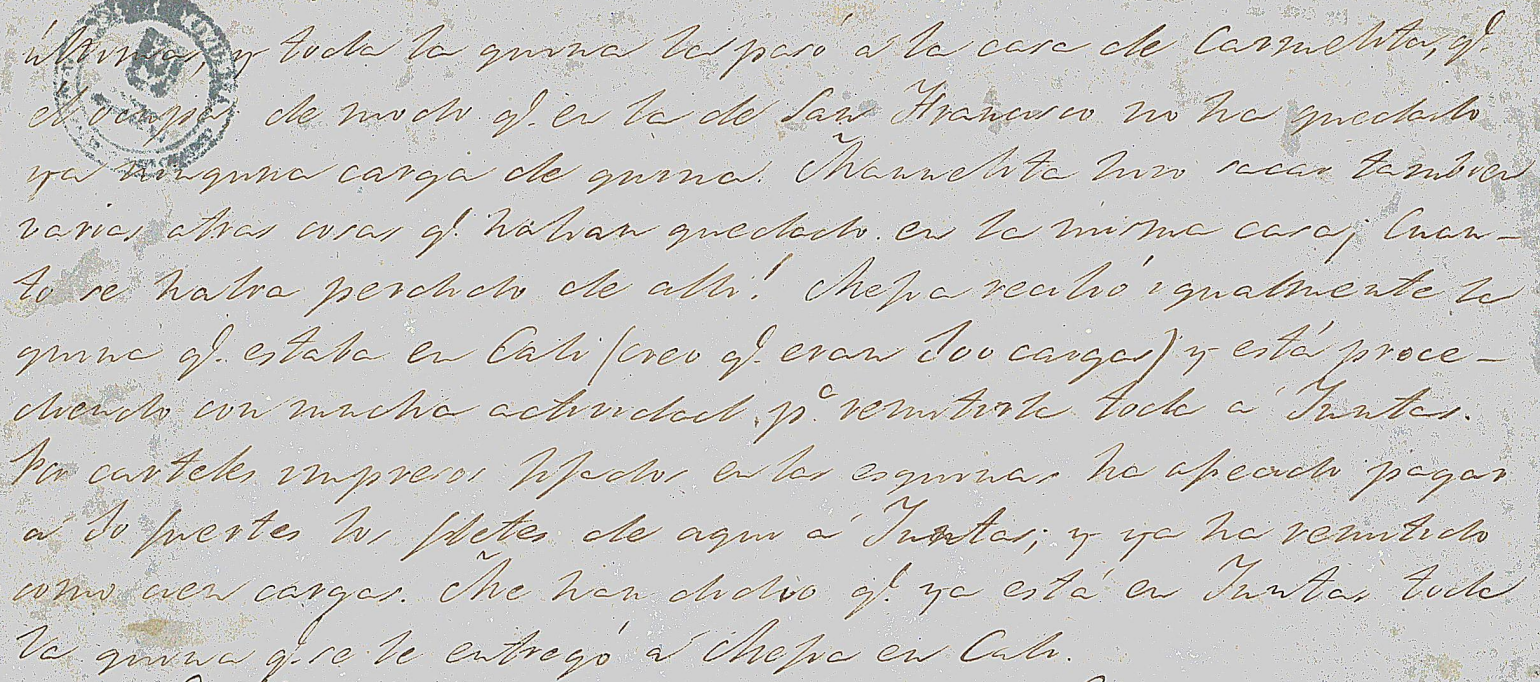 últimas, y toda la quina la pasó á la casa de Carmelita, q.
el ocupa: de modo q. en la de San Francisco no ha quedado
ya ninguna carga de quina. Manuelita hizo sacar tambien
varias otras cosas q. habian quedado en la misma casa; Cuan-
to se habra perdido de alli! Chepa recibió igualmente la
quina q. estaba en Cali (creo q. eran 300 cargas) y está proce-
diendo con mucha actividad p.ª remitirla toda á Juntas.
Por carteles impresos fijados en las esquinas ha ofrecido pagar
á 10 fuertes los fletes de aqui á Juntas; y ya ha remitido
como cien cargas. Me han dicho q. ya está en Juntas toda
la quina q. se le entregó á Chepa en Cali.